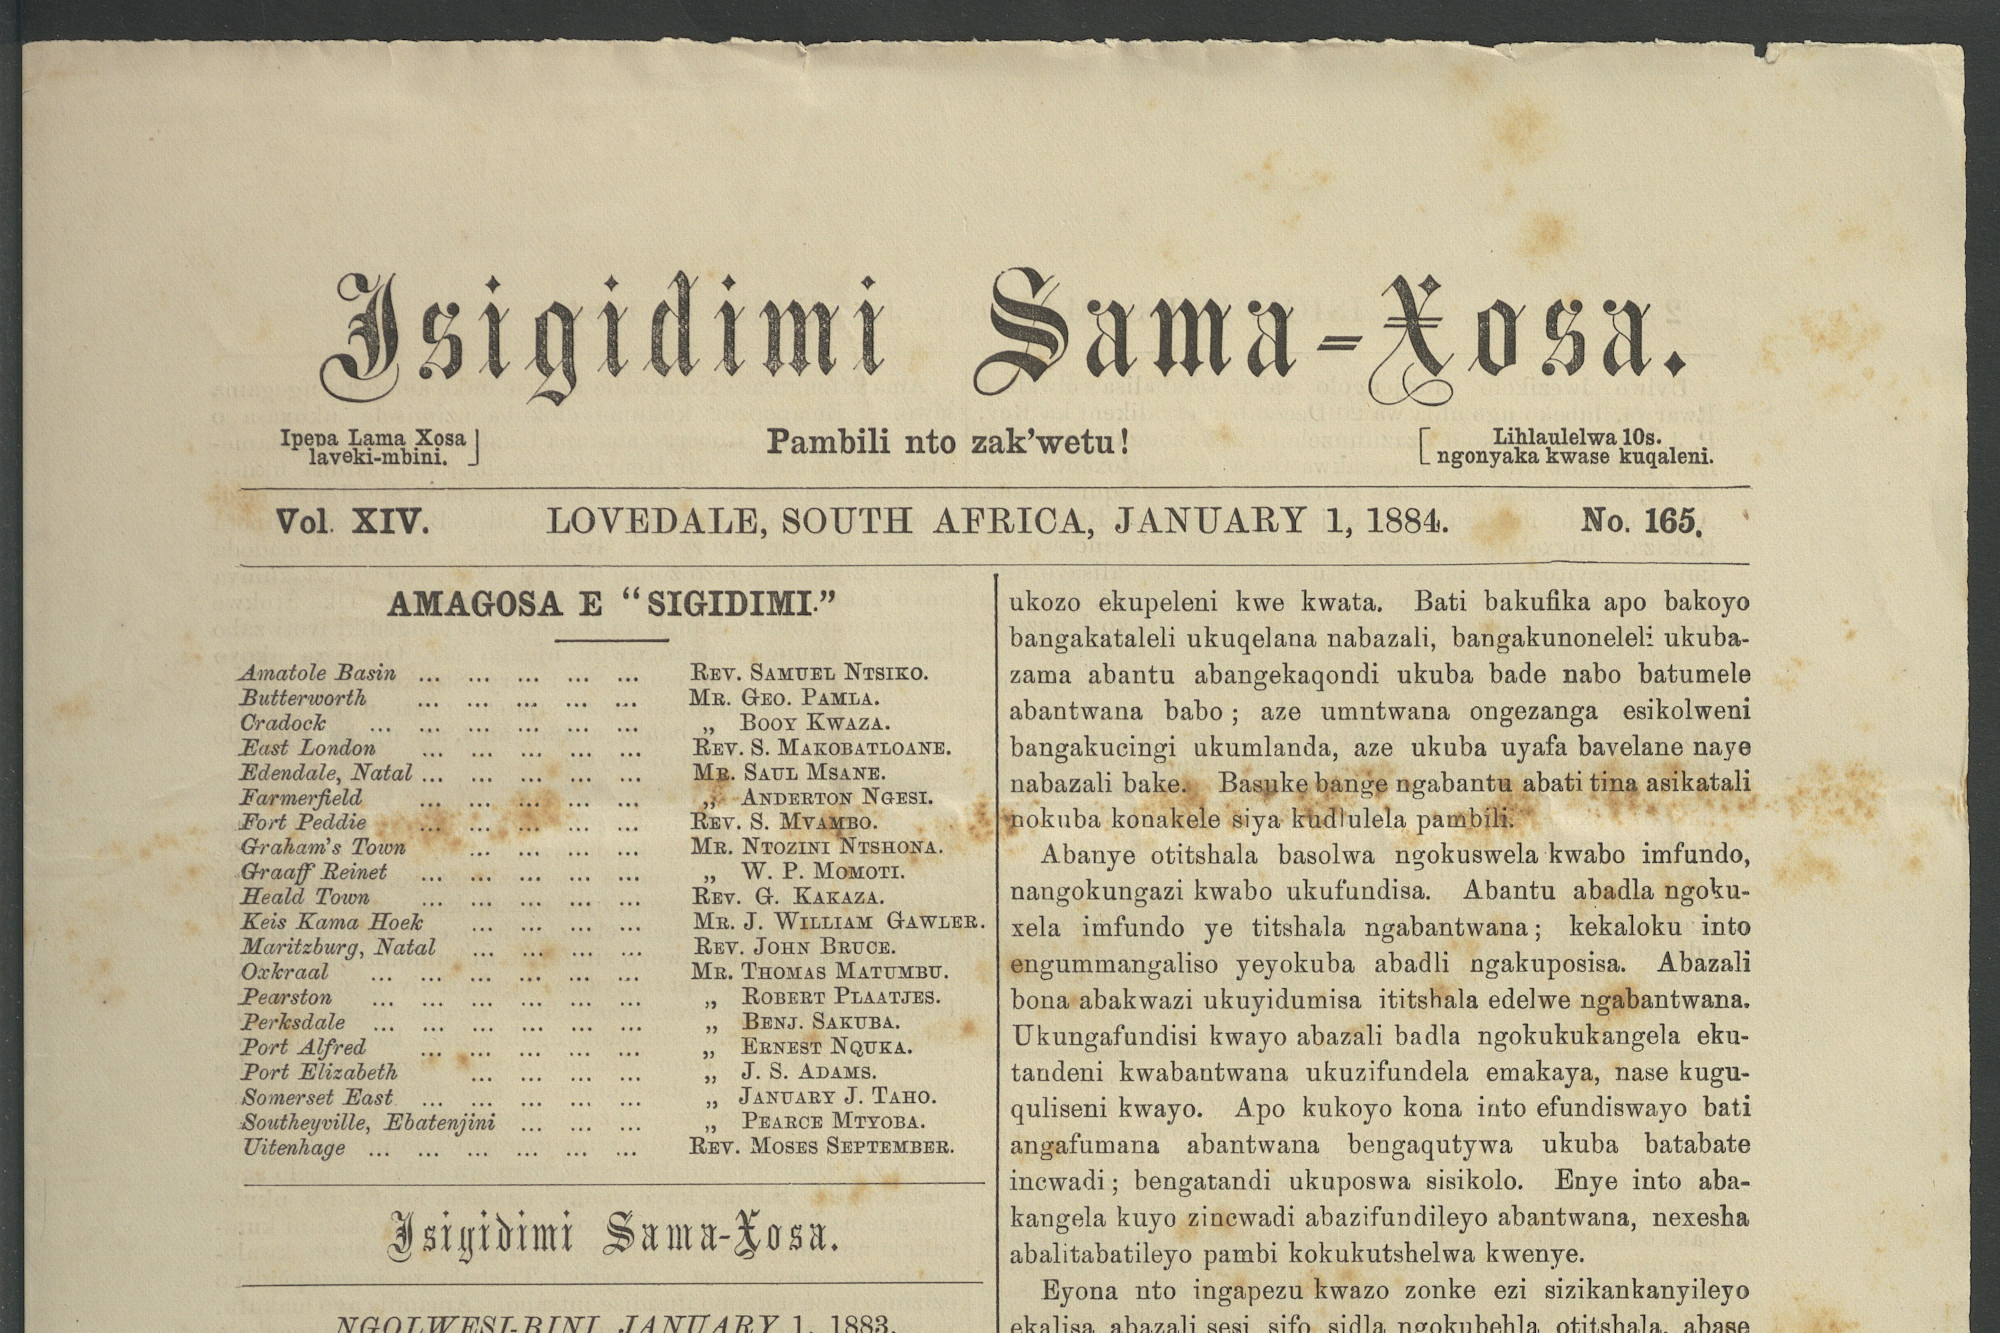 Isigidimi Sama-Xosa.
Ipepa Lama Xosa laveki-mbini.]
Pambili nto zak'wetu!
[Lihlaulelwa 10s. ngonyaka kwase kuqaleni.
Vol. XIV. LOVEDALE, SOUTH AFRICA, JANUARY 1, 1884. No. 165.
AMAGOSA E "SIGIDIMI."
Amatole Basin ... ... ... ... ... REV. SAMUEL NTSIKO.
Butterworth ... ... ... ... ... MR. GEO. PAMLA.
Cradock ... ... ... ... ... ... „ BOOY KWAZA.
East London ... ... ... ... ... REV. S. MAKOBATLOANE.
Edendale, Natal ... ... ... ... ... MR. SAUL MSANE.
Farmerfield ... ... ... ... ... „ ANDERTON NGESI.
Fort Peddie ... ... ... ... ... REV. S. MVAMBO.
Graham's Town ... ... ... ... MR. NTOZINI NTSHONA.
Graaff Reinet ... ... ... ... ... „ W. P. MOMOTI.
Heald Town ... ... ... ... ... REV. G. KAKAZA.
Keis Kama Hoek ... ... ... ... MR. J. WILLIAM GAWLER.
Maritzburg, Natal ... ... ... ... REV. JOHN BRUCE.
Oxkraal ... ... ... ... ... ... MR. THOMAS MATUMBU.
Pearston ... ... ... ... ... ... „ ROBERT PLAATJES.
Perksdale ... ... ... ... ... ... „ BENJ. SAKUBA.
Port Alfred ... ... ... ... ... „ ERNEST NQUKA.
Port Elizabeth ... ... ... ... „ J. S. ADAMS.
Somerset East ... ... ... ... ... „ JANUARY J. TAHO.
Southeyville, Ebatenjini ... ... ... „ PEARCE MTYOBA.
Uitenhage ... ... ... ... ... ... REV. MOSES SEPTEMBER.
Isigidimi Sama-Xosa.
NGOLWESI-BINI, JANUARY 1, 1883.
ukozo ekupeleni kwe kwata. Bati bakufika apo bakoyo
bangakataleli ukuqelana nabazali, bangakunoneleli ukuba-
zama abantu abangekaqondi ukuba bade nabo batumele
abantwana babo; aze umntwana ongezanga esikolweni
bangakucingi ukumlanda, aze ukuba uyafa bavelane naye
nabazali bake. Basuke bange ngabantu abati tina asikatali
nokuba konakele siya kudlulela pambili.
Abanye otitshala basolwa ngokuswela kwabo imfundo,
nangokungazi kwabo ukufundisa. Abantu abadla ngoku-
xela imfundo ye titshala ngabantwana; kekaloku into
engummangaliso yeyokuba abadli ngakuposisa. Abazali
bona abakwazi ukuyidumisa ititshala edelwe ngabantwana.
Ukungafundisi kwayo abazali badla ngokukukangela eku-
tandeni kwabantwana ukuzifundela emakaya, nase kugu-
quliseni kwayo. Apo kukoyo kona into efundiswayo bati
angafumana abantwana bengaqutywa ukuba batabate
incwadi; bengatandi ukuposwa sisikolo. Enye into aba-
kangela kuyo zincwadi abazifundileyo abantwana, nexesha
abalitabatileyo pambi kokukutshelwa kwenye.
Eyona nto ingapezu kwazo zonke ezi sizikankanyileyo
ekalisa abazali sesi sifo sidla ngokubehla otitshala, abase